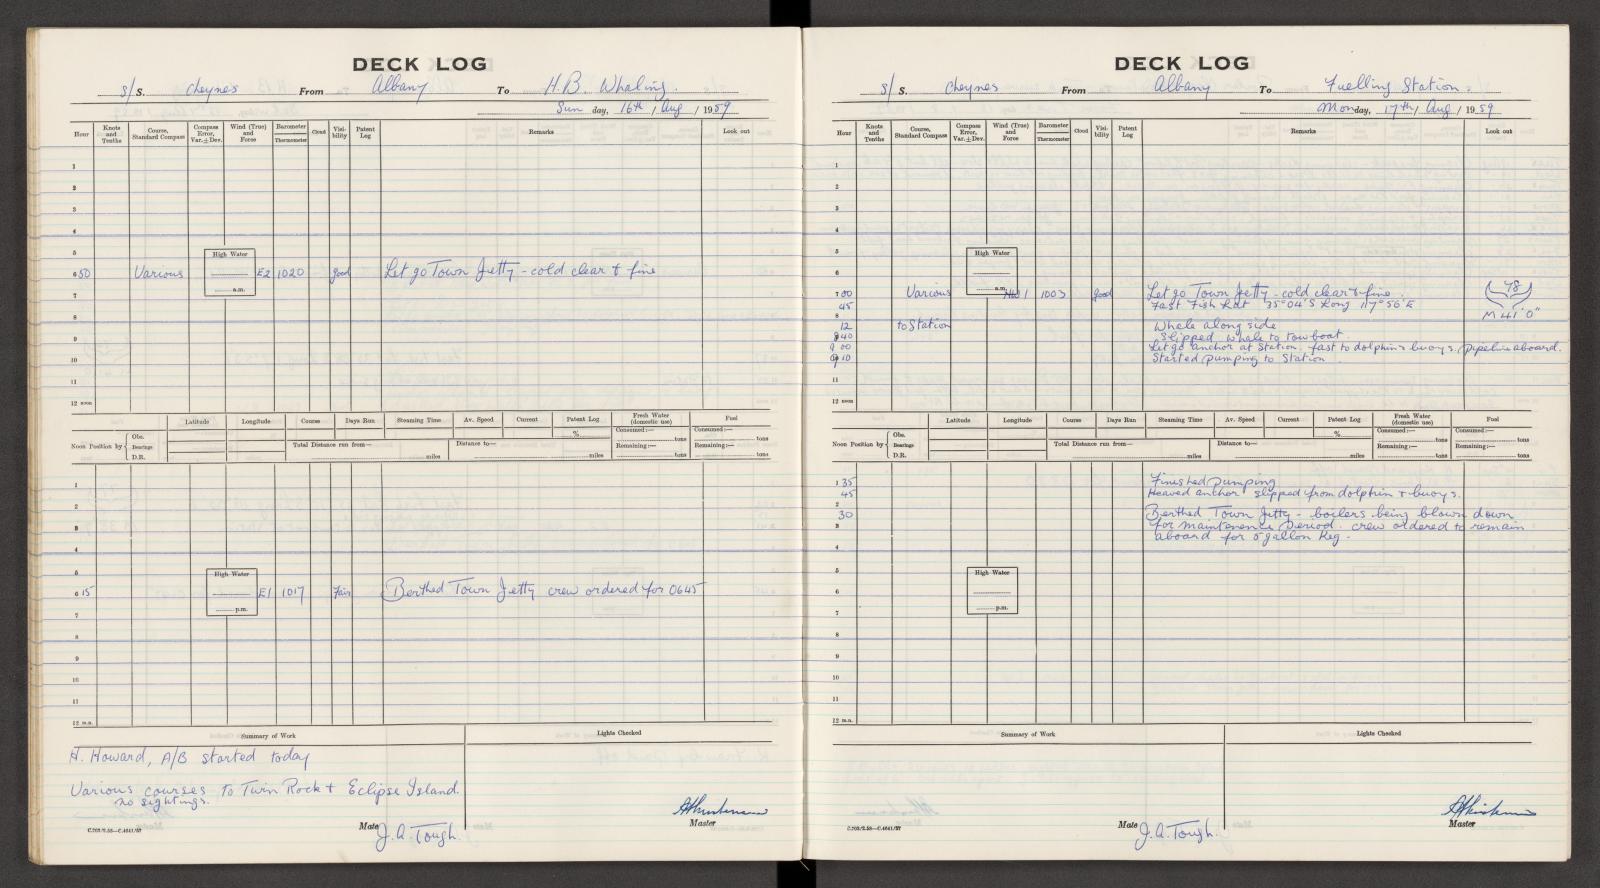 DECK LOG
S/S. Cheynes From Albany To H.B. Whaling.
Sunday, 16th / Aug / 1959
Hour Knots and Tenths Course, Standard Compass Compass Error, Var. ± Dev. Wind (True) and Force Barometer Thermometer Cloud Visibility Patent Log Remarks Look out
1
2
3
4
5 High Water
6 50 Various E2 1020 good Let go Town Jetty - cold clear & fine
a.m.
7
8
9
10
11
12 noon
Latitude Longitude Course Days Run Steaming Time Av. Speed Current Patent Log Fresh Water (domestic use) Fuel
% Consumed:— tons Consumed:— tons
Noon Position by Obs. Bearings D.R. Total Distance run from— miles Distance to— miles Remaining:— tons Remaining:— tons
1
2
3
4
5 High Water
6 15 E1 1017 Fair Berthed Town Jetty crew ordered for 0645
p.m.
7
8
9
10
11
12 m.n.
Summary of Work Lights Checked
H. Howard, A/B started today
Various courses to Twin Rock & Eclipse Island.
no sightings.
Master
Mate J.A. Tough.
C.703/2.58—C.4641/37
DECK LOG
S/S. Cheynes From Albany To Fuelling Station.
Monday, 17th / Aug / 1959
Hour Knots and Tenths Course, Standard Compass Compass Error, Var. ± Dev. Wind (True) and Force Barometer Thermometer Cloud Visibility Patent Log Remarks Look out
1
2
3
4
5 High Water
6
a.m.
7 00 Various NW 1 1003 good Let go Town Jetty - cold clear & fine. 78
45 Fast Fish Lat 35°04'S Long 117°56'E
8 M 41'0"
12 to Station Whale along side
9 40 Slipped whale to tow boat.
9 00 Let go anchor at Station. fast to dolphins buoys. pipeline aboard.
10 Started pumping to Station
11
12 noon
Latitude Longitude Course Days Run Steaming Time Av. Speed Current Patent Log Fresh Water (domestic use) Fuel
% Consumed:— tons Consumed:— tons
Noon Position by Obs. Bearings D.R. Total Distance run from— miles Distance to— miles Remaining:— tons Remaining:— tons
1 35 Finished pumping
45 Heaved anchor slipped from dolphin & buoys.
2
30 Berthed Town Jetty - boilers being blown down
3 for maintenence period. crew ordered to remain
aboard for 5 gallon Keg.
4
5 High Water
6
p.m.
7
8
9
10
11
12 m.n.
Summary of Work Lights Checked
Master
Mate J.A. Tough.
C.703/2.58—C.4641/37